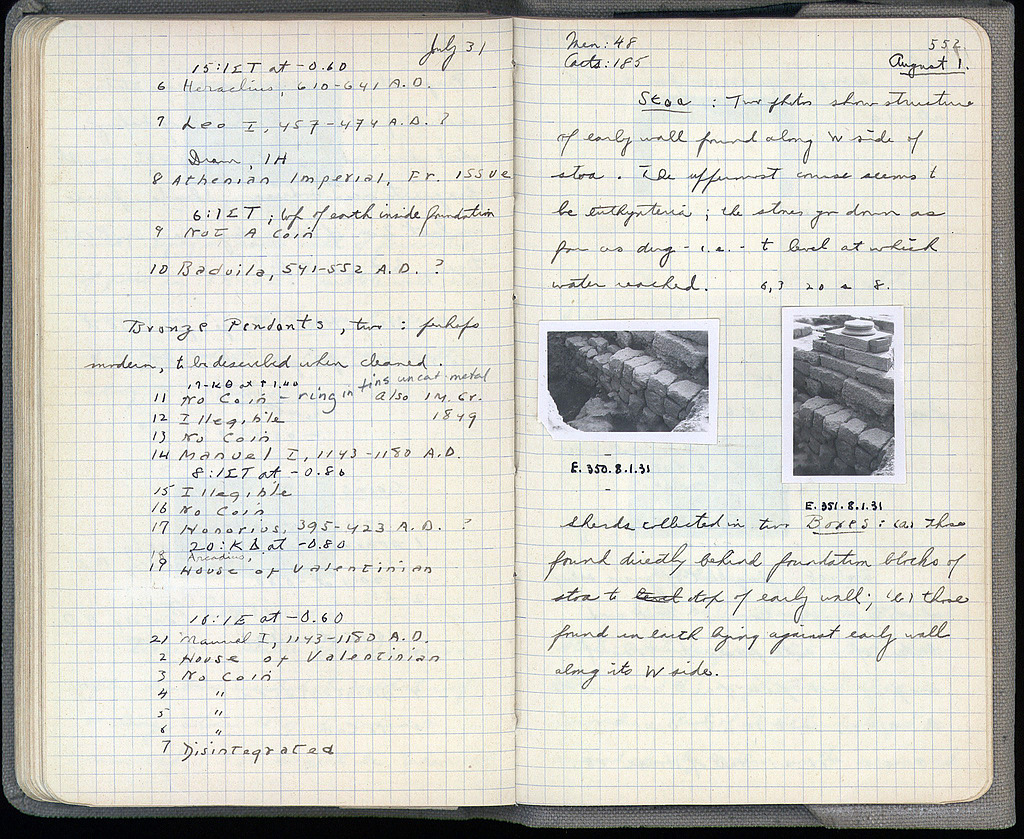 July 31
15:1ΣT at -0.60
6 Heraclius, 610-641 A.D.
7 Leo I, 457-474 A.D. ?
Drain, 1H
8 Athenian Imperial, Fr. ISSUE
6:1ΣT ; top of earth inside foundation
9 Not A Coin
10 Baduila, 541-552 A.D. ?
Bronze Pendants, two : perhaps
modern, to be described when cleaned.
11 No Coin - ring in fins uncat. metal
also 1 M. Gr.
12 Illegible 1849
13 No Coin
14 Manuel I, 1143-1180 A.D.
8:1ΣT at -0.80
15 Illegible
16 No Coin
17 Honorius, 395-423 A.D. ?
20:KΔ at -0.80
18 Arcadius,
19 House of Valentinian
16:1E at -0.60
21 Manuel I, 1143-1180 A.D.
2 House of Valentinian
3 No Coin
4 "
5 "
6 "
7 Disintegrated
Men: 48
Carts: 185
552
August 1.
Stoa : Two photos show structure
of early wall found along W side of
stoa. The uppermost course seems t
be euthynteria; the stones go down as
far as dug - i.e. - t level at which
water reached.
E.350.8.1.31
E.351.8.1.31
Sherds collected in two Boxes: (a) those
found directly behind foundation blocks of
stoa to level top of early wall; (b) those
found in earth lying against early wall
along its W side.